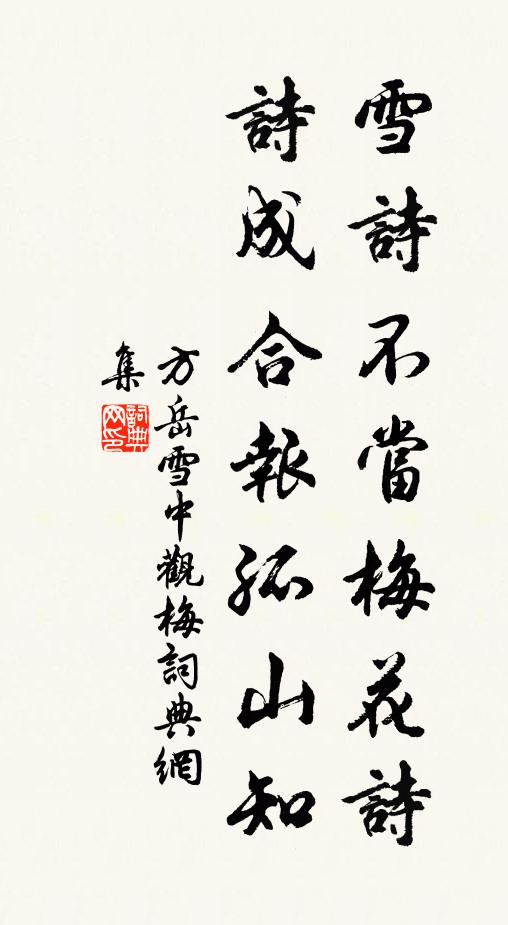 雪詩不當梅花詩
詩成合報孤山知
方岳雪中觀梅詞典網
集
詞典網印